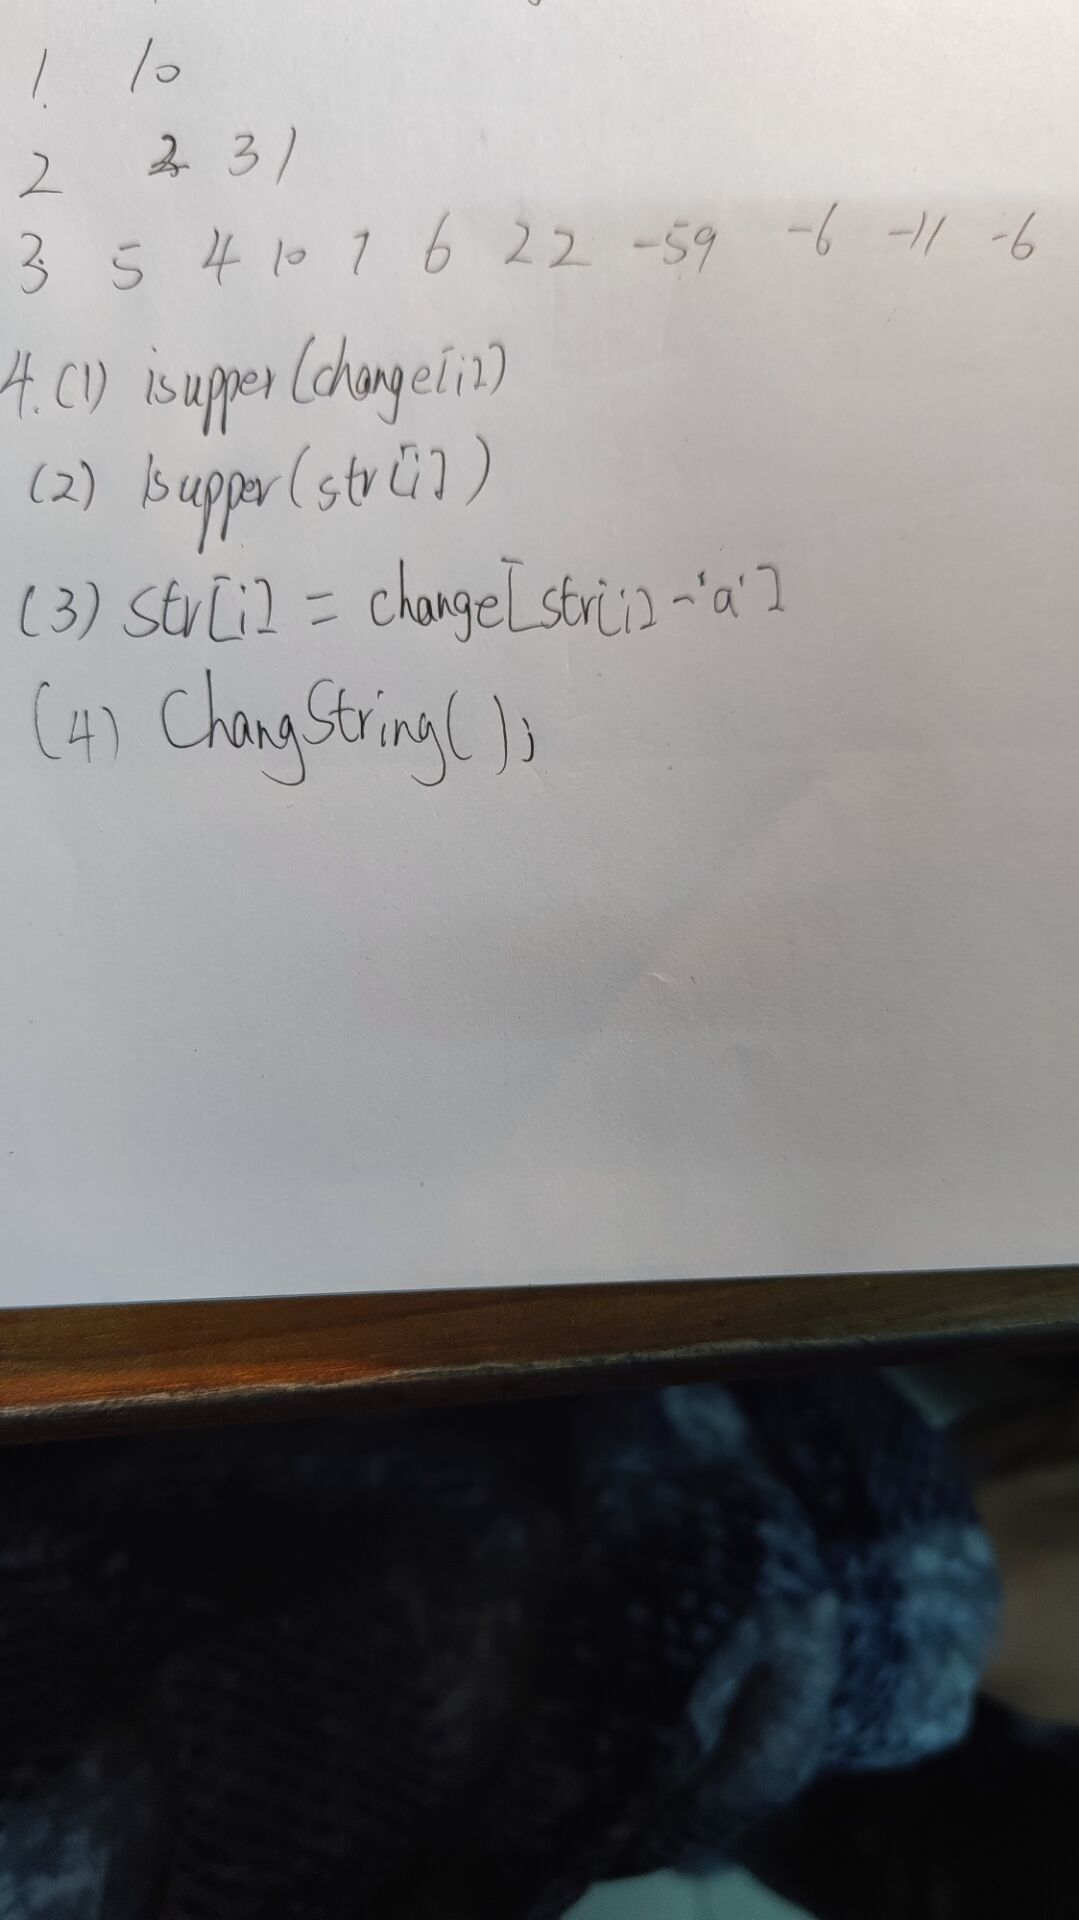 1. 10
2 2 31
3. 5 4 10 7 6 22 -59 -6 -11 -6
4. (1) isupper(change[i])
(2) isupper(str[i])
(3) str[i] = change[str[i]-'a']
(4) ChangString();